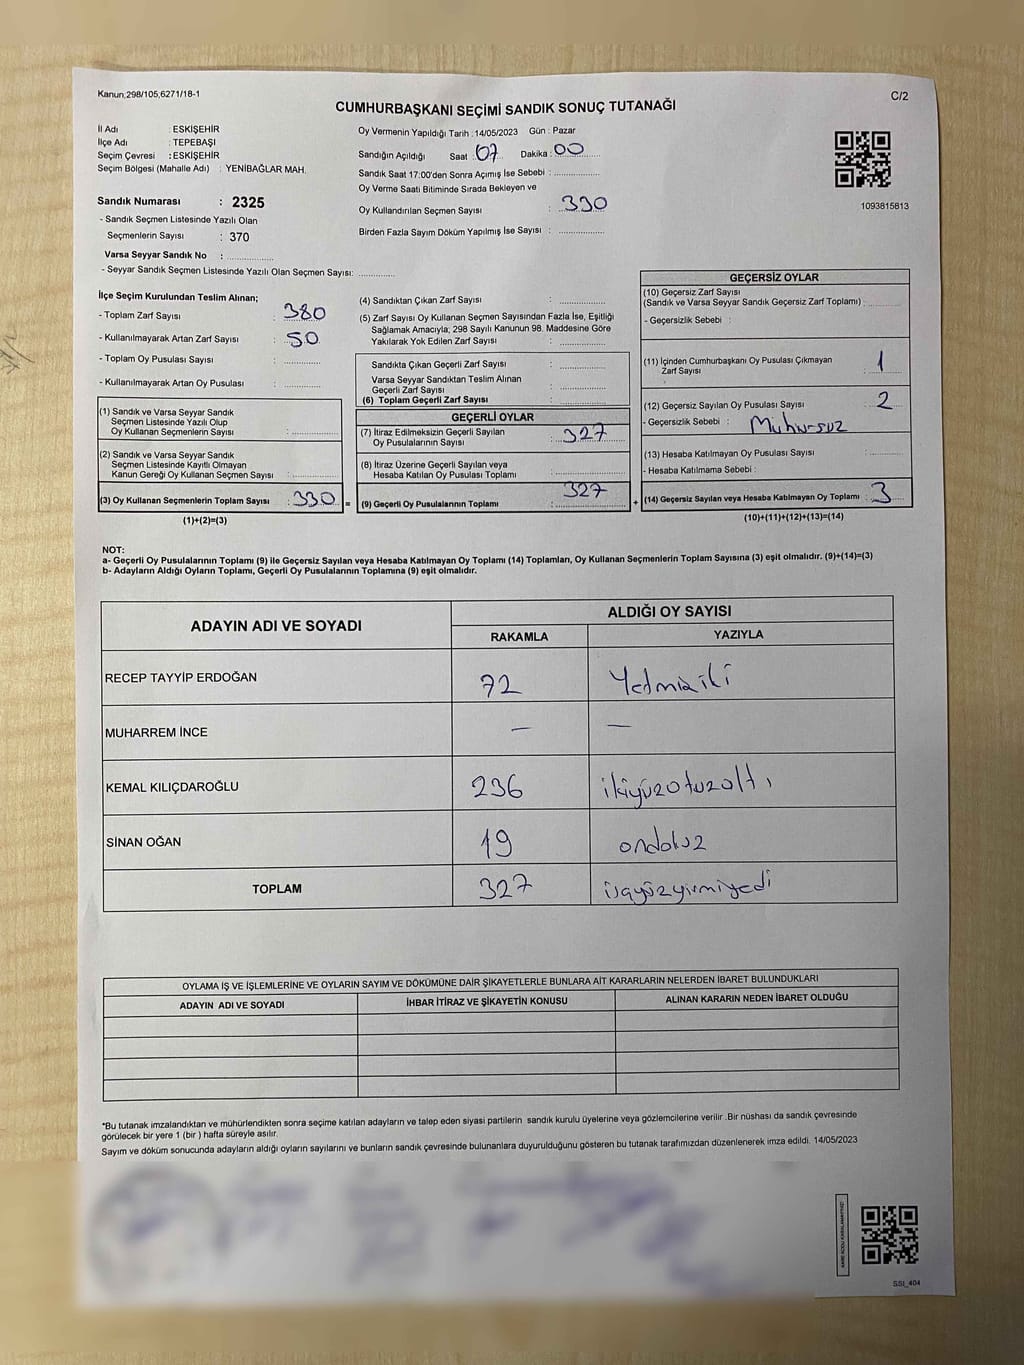 Kanun,298/105,6271/18-1
C/2
CUMHURBAŞKANI SEÇİMİ SANDIK SONUÇ TUTANAĞI
İl Adı : ESKİŞEHİR
İlçe Adı : TEPEBAŞI
Seçim Çevresi : ESKİŞEHİR
Seçim Bölgesi (Mahalle Adı) : YENİBAĞLAR MAH.
Sandık Numarası : 2325
- Sandık Seçmen Listesinde Yazılı Olan
Seçmenlerin Sayısı : 370
Varsa Seyyar Sandık No : ..................
- Seyyar Sandık Seçmen Listesinde Yazılı Olan Seçmen Sayısı: ..............
Oy Vermenin Yapıldığı Tarih : 14/05/2023 Gün : Pazar
Sandığın Açıldığı Saat : 07 Dakika : 00
Sandık Saat 17:00'den Sonra Açımış İse Sebebi : ..................
Oy Verme Saati Bitiminde Sırada Bekleyen ve
Oy Kullandırılan Seçmen Sayısı : 330
Birden Fazla Sayım Döküm Yapılmış İse Sayısı : ..................
1093815813
İlçe Seçim Kurulundan Teslim Alınan;
- Toplam Zarf Sayısı : 380
- Kullanılmayarak Artan Zarf Sayısı : 50
- Toplam Oy Pusulası Sayısı : ..............
- Kullanılmayarak Artan Oy Pusulası : ..............
(1) Sandık ve Varsa Seyyar Sandık
Seçmen Listesinde Yazılı Olup
Oy Kullanan Seçmenlerin Sayısı : ..................
(2) Sandık ve Varsa Seyyar Sandık
Seçmen Listesinde Kayıtlı Olmayan
Kanun Gereği Oy Kullanan Seçmen Sayısı : ..................
(3) Oy Kullanan Seçmenlerin Toplam Sayısı : 330 =
(1)+(2)=(3)
(4) Sandıktan Çıkan Zarf Sayısı : ..................
(5) Zarf Sayısı Oy Kullanan Seçmen Sayısından Fazla İse, Eşitliği
Sağlamak Amacıyla; 298 Sayılı Kanunun 98. Maddesine Göre
Yakılarak Yok Edilen Zarf Sayısı : ..................
Sandıkta Çıkan Geçerli Zarf Sayısı : ..................
Varsa Seyyar Sandıktan Teslim Alınan
Geçerli Zarf Sayısı : ..................
(6) Toplam Geçerli Zarf Sayısı : ..................
GEÇERLİ OYLAR
(7) İtiraz Edilmeksizin Geçerli Sayılan
Oy Pusulalarının Sayısı : 327
(8) İtiraz Üzerine Geçerli Sayılan veya
Hesaba Katılan Oy Pusulası Toplamı : ..................
(9) Geçerli Oy Pusulalarının Toplamı : 327 +
GEÇERSİZ OYLAR
(10) Geçersiz Zarf Sayısı
(Sandık ve Varsa Seyyar Sandık Geçersiz Zarf Toplamı) : ..............
- Geçersizlik Sebebi :
(11) İçinden Cumhurbaşkanı Oy Pusulası Çıkmayan
Zarf Sayısı : 1
(12) Geçersiz Sayılan Oy Pusulası Sayısı : 2
- Geçersizlik Sebebi :
(13) Hesaba Katılmayan Oy Pusulası Sayısı : ..............
- Hesaba Katılmama Sebebi :
(14) Geçersiz Sayılan veya Hesaba Katılmayan Oy Toplamı : 3
(10)+(11)+(12)+(13)=(14)
NOT:
a- Geçerli Oy Pusulalarının Toplamı (9) ile Geçersiz Sayılan veya Hesaba Katılmayan Oy Toplamı (14) Toplamları, Oy Kullanan Seçmenlerin Toplam Sayısına (3) eşit olmalıdır. (9)+(14)=(3)
b- Adayların Aldığı Oyların Toplamı, Geçerli Oy Pusulalarının Toplamına (9) eşit olmalıdır.
ADAYIN ADI VE SOYADI
ALDIĞI OY SAYISI
RAKAMLA YAZIYLA
RECEP TAYYİP ERDOĞAN 72 Yetmişiki
MUHARREM İNCE — —
KEMAL KILIÇDAROĞLU 236 ikiyüzotuzaltı
SİNAN OĞAN 19 ondokuz
TOPLAM 327 üçyüzyirmiyedi
OYLAMA İŞ VE İŞLEMLERİNE VE OYLARIN SAYIM VE DÖKÜMÜNE DAİR ŞİKAYETLERLE BUNLARA AİT KARARLARIN NELERDEN İBARET BULUNDUKLARI
ADAYIN ADI VE SOYADI İHBAR İTİRAZ VE ŞİKAYETİN KONUSU ALINAN KARARIN NEDEN İBARET OLDUĞU
*Bu tutanak imzalandıktan ve mühürlendikten sonra seçime katılan adayların ve talep eden siyasi partilerin sandık kurulu üyelerine veya gözlemcilerine verilir .Bir nüshası da sandık çevresinde
görülecek bir yere 1 (bir ) hafta süreyle asılır.
Sayım ve döküm sonucunda adayların aldığı oyların sayılarını ve bunların sandık çevresinde bulunanlara duyurulduğunu gösteren bu tutanak tarafımızdan düzenlenerek imza edildi. 14/05/2023
SSI_404